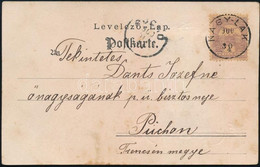 Levelező-Lap.
Postkarte.
NAGY-LAK
Tekintetes
Dants Jozefne
önagyságának p. ü. biztos neje
Puchon
Trencsén megye